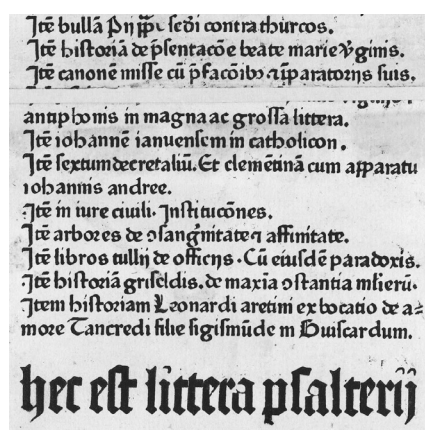 Itē bullā Pij ppe secūdi contra thurcos.
Itē historiā de p̄sentacōe beate marie ꝟginis.
Itē canonē misse cū p̄facōibꝫ ⁊ īparatorijs suis.
antiphonis in magna ac grossa littera.
Itē iohannē ianuensem in catholicon.
Itē sextum decretaliū. Et clemētinā cum apparatu
iohannis andree.
Itē in iure ciuili. Institucōnes.
Itē arbores de ↄsangͥnitate ⁊ affinitate.
Itē libros tullij de officijs. Cū eiusdē paradoxis.
Itē historiā griseldis. de maxīa ↄstantia mlierū.
Item historiam Leonardi aretini ex bocatio de a⸗
more Tancredi filie sigismūde in Guiscardum.
hec est littera psalterij